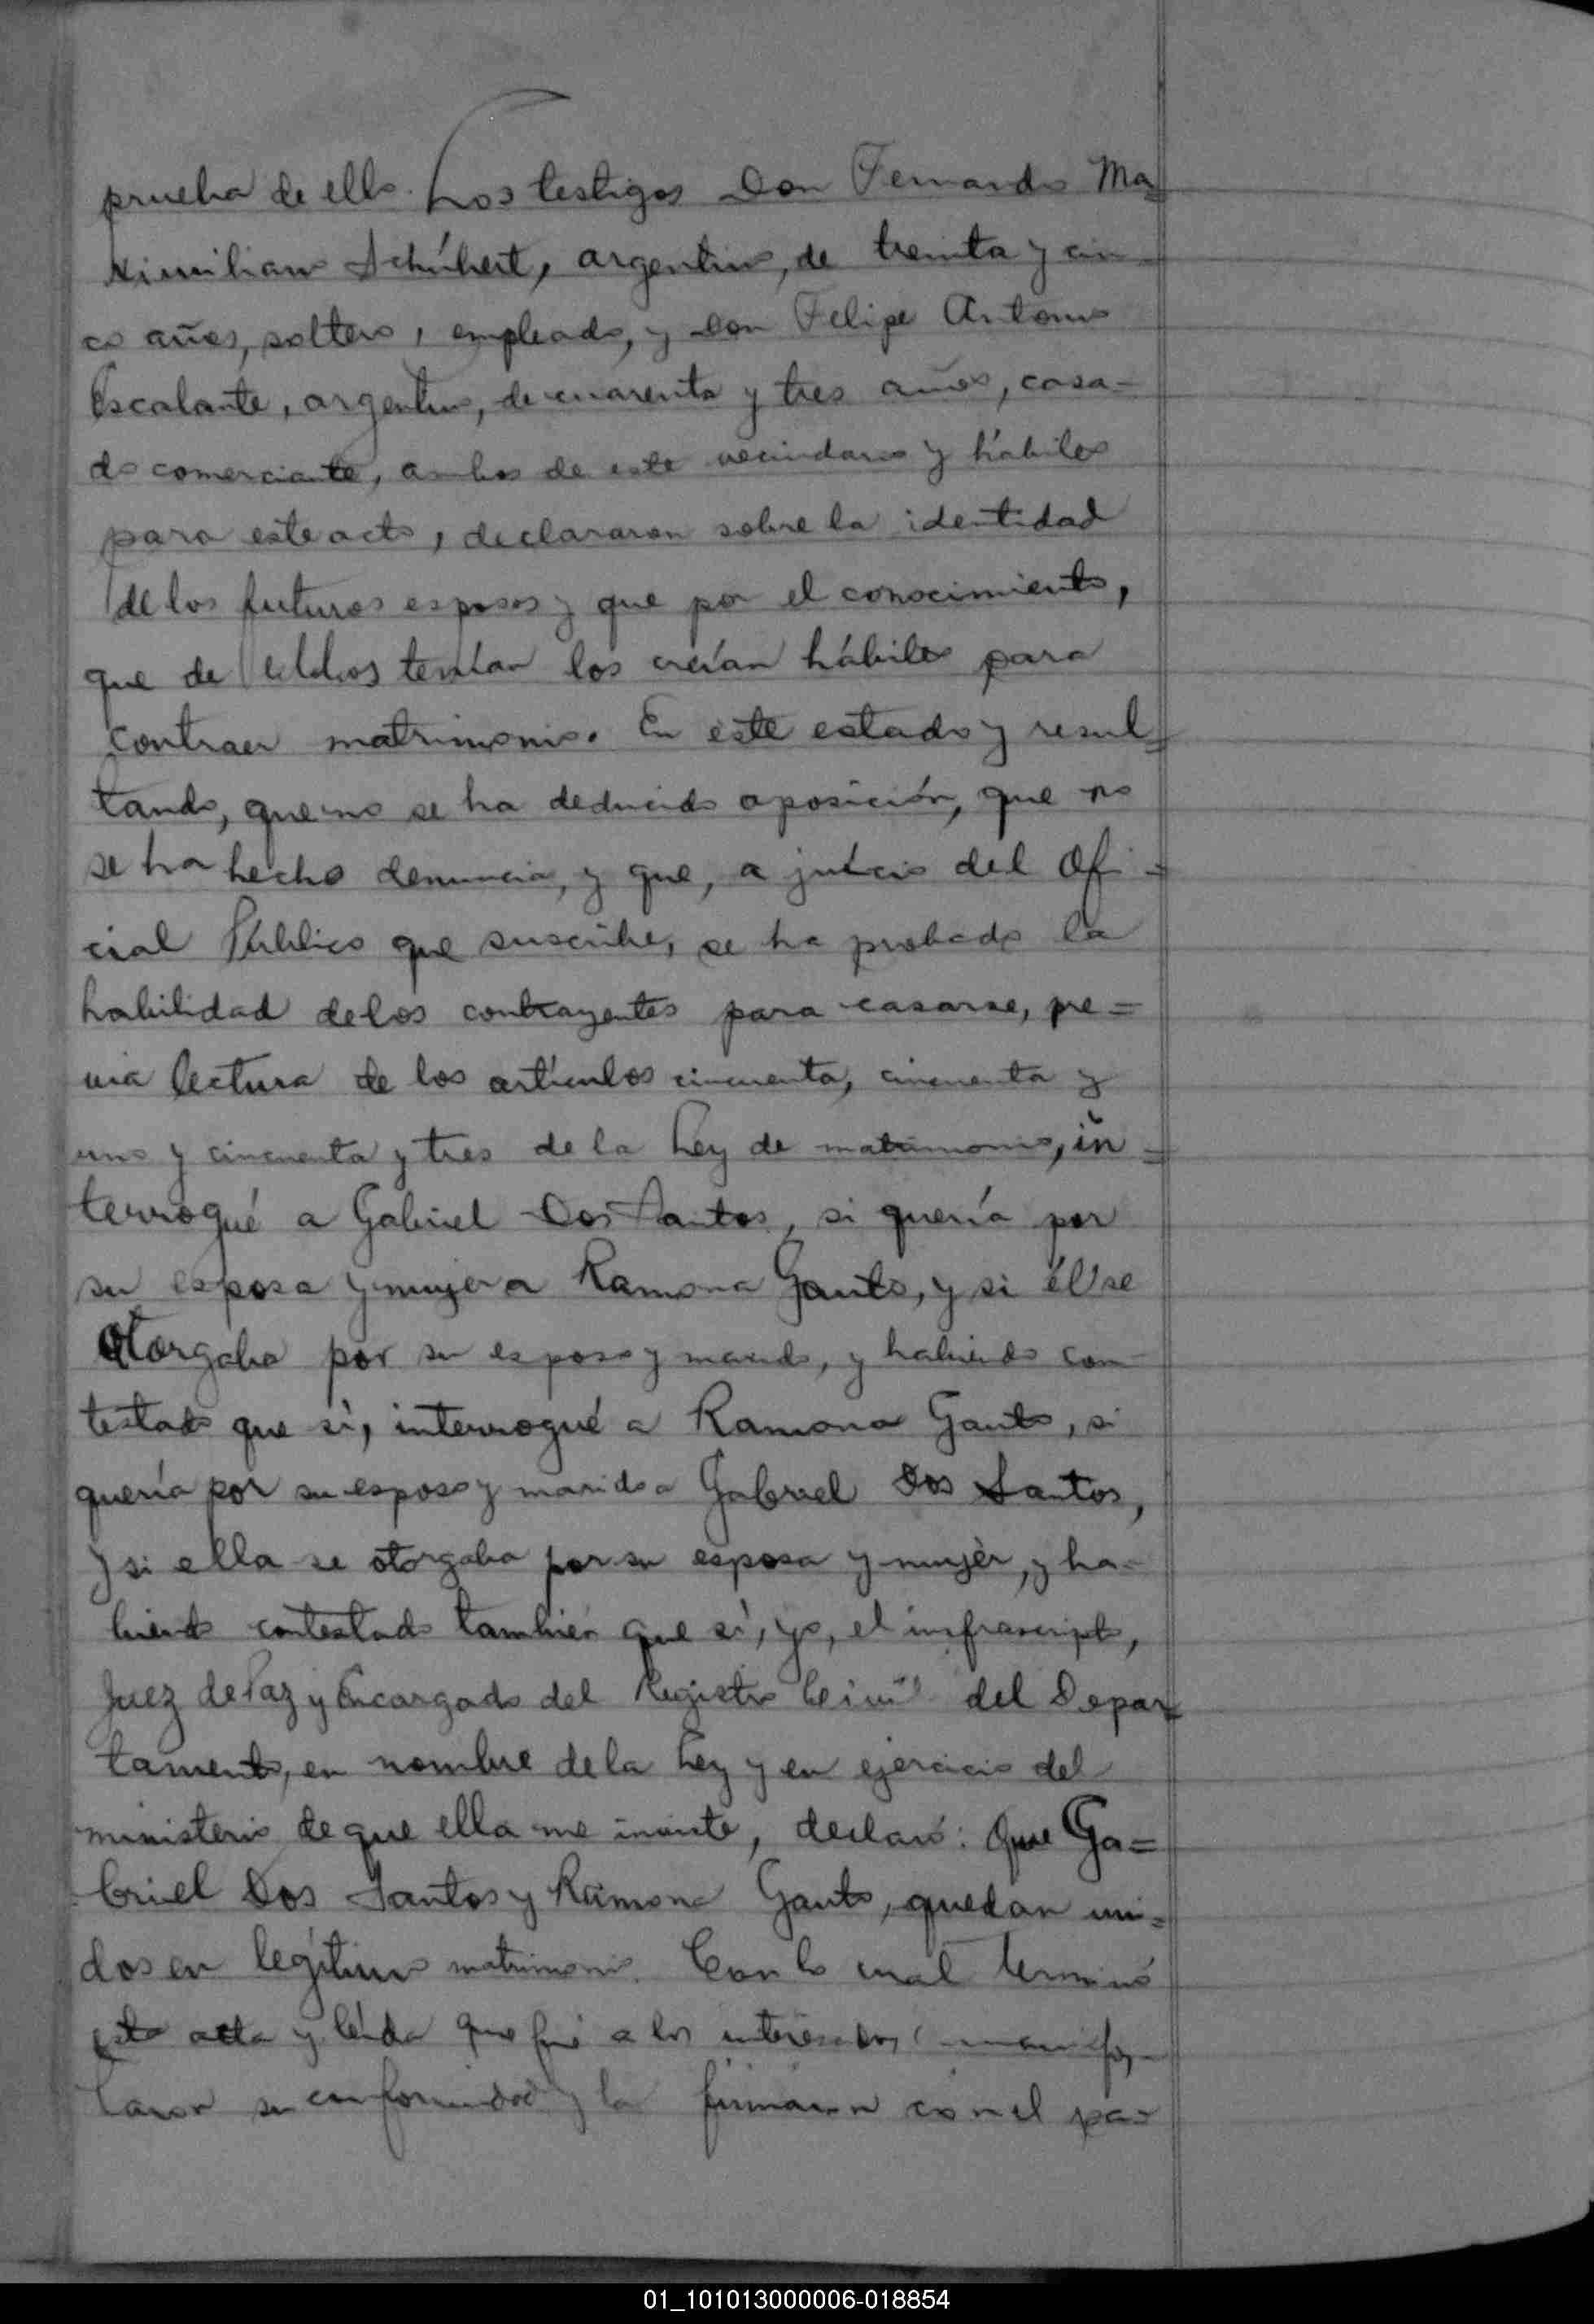 prueba de ello. Los testigos Don Fernando Ma=
ximiliano Schúbert, argentino, de treinta y cin-
co años, soltero, empleado, y Don Felipe Antonio
Escalante, argentino, de cuarenta y tres años, casa-
do comerciante, ambos de este vecindario y hábiles
para este acto, declararon sobre la identidad
de los futuros esposos y que por el conocimiento,
que de ellos tenían los creían hábiles para
contraer matrimonio. En este estado y resul=
tando, que no se ha deducido oposición, que no
se ha hecho denuncia, y que, a juicio del Ofi=
cial Público que suscribe, se ha probado la
habilidad de los contrayentes para casarse, pre=
via lectura de los artículos cincuenta, cincuenta y
uno y cincuenta y tres de la Ley de matrimonio, in=
terrogué a Gabriel Dos Santos, si quería por
su esposa y mujer a Ramona Gauto, y si él se
otorgaba por su esposo y marido, y habiendo con-
testado que sí, interrogué a Ramona Gauto, si
quería por su esposo y marido a Gabriel Dos Santos,
y si ella se otorgaba por su esposa y mujer, y ha-
biendo contestado también que sí, yo, el infrascripto,
Juez de Paz y Encargado del Registro Civil del Depar=
tamento, en nombre de la Ley y en ejercicio del
ministerio de que ella me inviste, declaró: Que Ga=
briel Dos Santos y Ramona Gauto, quedan uni=
dos en legítimo matrimonio. Con lo cual terminó
esta acta y leída que fué a los interesados, manifes-
taron su conformidad y la firmaron con el pa-
01_101013000006-018854